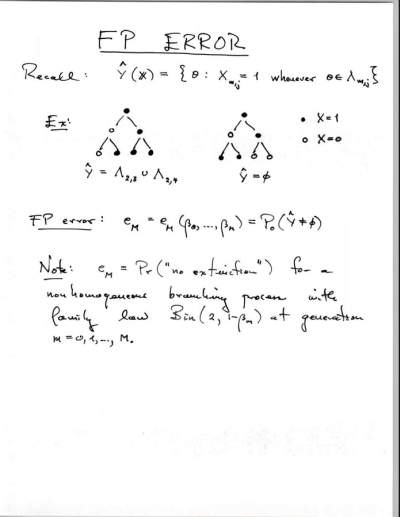 FP ERROR
Recall: Ŷ(x) = { θ : X_{m,j} = 1 whenever θ ∈ Λ_{m,j} }
Ex: • X=1
o X=0
Ŷ = Λ_{2,3} ∪ Λ_{2,4} Ŷ = ϕ
FP error: e_M = e_M (β_0, ..., β_M) = P_0 (Ŷ ≠ ϕ)
Note: e_M = Pr ("no extinction") for a
nonhomogeneous branching process with
family law Bin(2, 1-β_m) at generation
m = 0, 1, ..., M.